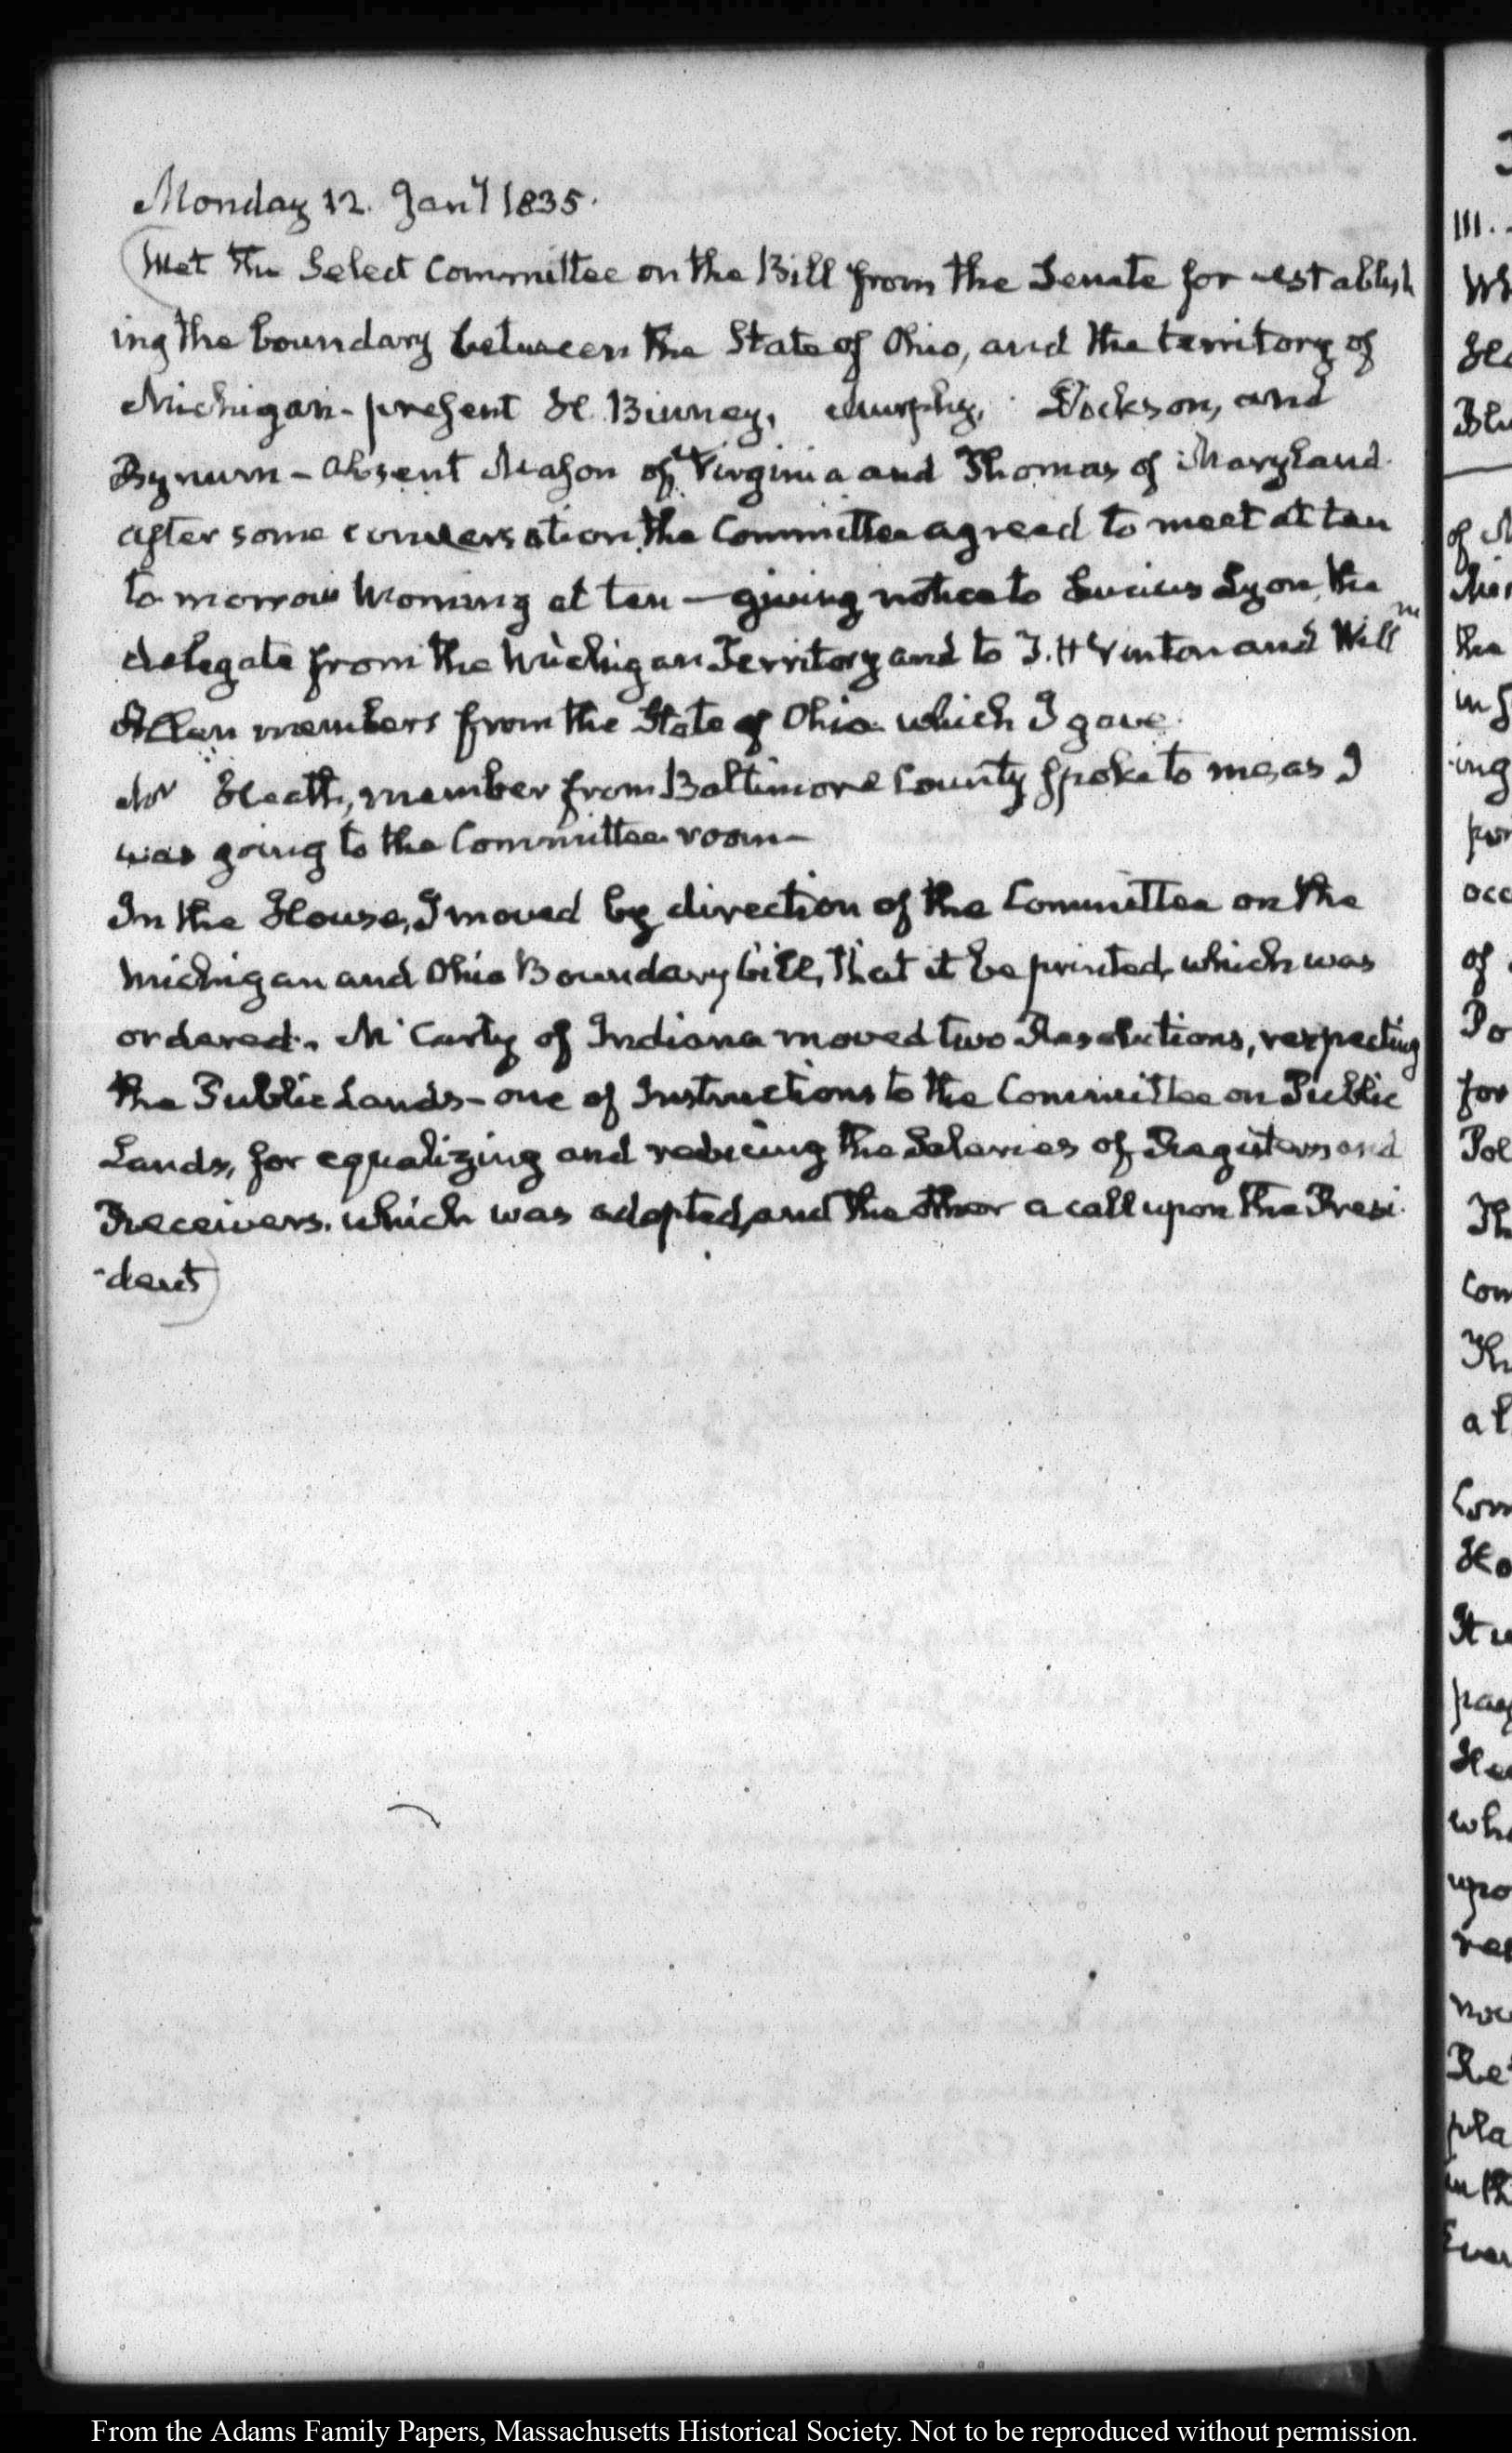 Monday 12. Jany 1835.
Met the Select Committee on the Bill from the Senate for establish
ing the boundary between the State of Ohio, and the territory of
Michigan - present H. Binney, Murphy, Dickson, and
Bynum - absent Mason of Virginia and Thomas of Maryland.
after some conversation, the Committee agreed to meet at ten
to morrow Morning at ten — giving notice to Lucius Lyon, the
delegate from the Michigan Territory and to J. H Vinton and Willm
Allen members from the State of Ohio which I gave.
Mr Heath, member from Baltimore County spoke to me, as I
was going to the Committee room—
In the House, I moved by direction of the Committee on the
Michigan and Ohio Boundary bill, that it be printed, which was
ordered. McCarty of Indiana moved two Resolutions, respecting
the Public Lands - one of Instructions to the Committee on Public
Lands, for equalizing and reducing the Salaries of Registers and
Receivers. which was adopted, and the other a call upon the Presi
-dent
III.
of
the
ing
occ
of
for
From the Adams Family Papers, Massachusetts Historical Society. Not to be reproduced without permission.